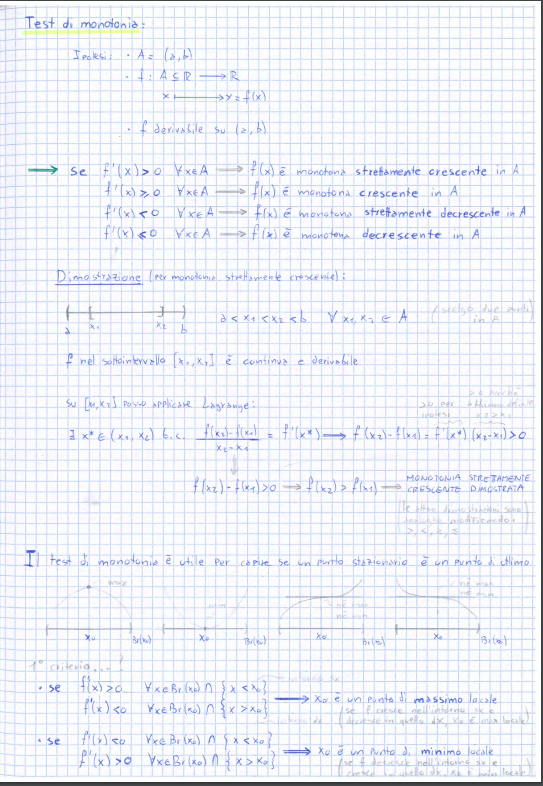 Test di monotonia:
Ipotesi: • A = (a,b)
• f: A ⊆ ℝ ⟶ ℝ
x ⟼ y = f(x)
• f derivabile su (a,b)
⟹ se f'(x) > 0 ∀x∈A ⟹ f(x) è monotona strettamente crescente in A
f'(x) ⩾ 0 ∀x∈A ⟹ f(x) è monotona crescente in A
f'(x) < 0 ∀x∈A ⟹ f(x) è monotona strettamente decrescente in A
f'(x) ⩽ 0 ∀x∈A ⟹ f(x) è monotona decrescente in A
Dimostrazione (per monotonia strettamente crescente):
a x₁ x₂ b a < x₁ < x₂ < b ∀ x₁, x₂ ∈ A (scelgo due punti in A)
f nel sottointervallo [x₁,x₂] è continua e derivabile
su [x₁,x₂] posso applicare Lagrange:
>0 per ipotesi
>0 perché x₂>x₁
∃ x* ∈ (x₁, x₂) t.c. f(x₂)-f(x₁) / x₂-x₁ = f'(x*) ⟹ f(x₂)-f(x₁) = f'(x*) (x₂-x₁) > 0
f(x₂)-f(x₁) > 0 ⟹ f(x₂) > f(x₁) ⟹ MONOTONIA STRETTAMENTE
CRESCENTE DIMOSTRATA
(le altre dimostrazioni sono
modificando i
>, <, ≥, ≤
Il test di monotonia è utile per capire se un punto stazionario è un punto di ottimo
max
min
né max
né min
né max
né min
x₀ Br(x₀) x₀ Br(x₀) x₀ Br(x₀) x₀ Br(x₀)
1° criterio...!
intorno sx
• se f'(x) > 0 ∀x∈Br(x₀) ∩ { x < x₀}
⟹ x₀ è un punto di massimo locale
f'(x) < 0 ∀x∈Br(x₀) ∩ { x > x₀}
intorno dx
(se f cresce nell'intorno sx e
decresce in quello dx, x₀ è max locale)
• se f'(x) < 0 ∀x∈Br(x₀) ∩ { x < x₀}
⟹ x₀ è un punto di minimo locale
f'(x) > 0 ∀x∈Br(x₀) ∩ { x > x₀}
(se f decresce nell'intorno sx e
cresce in quello dx, x₀ è min locale)